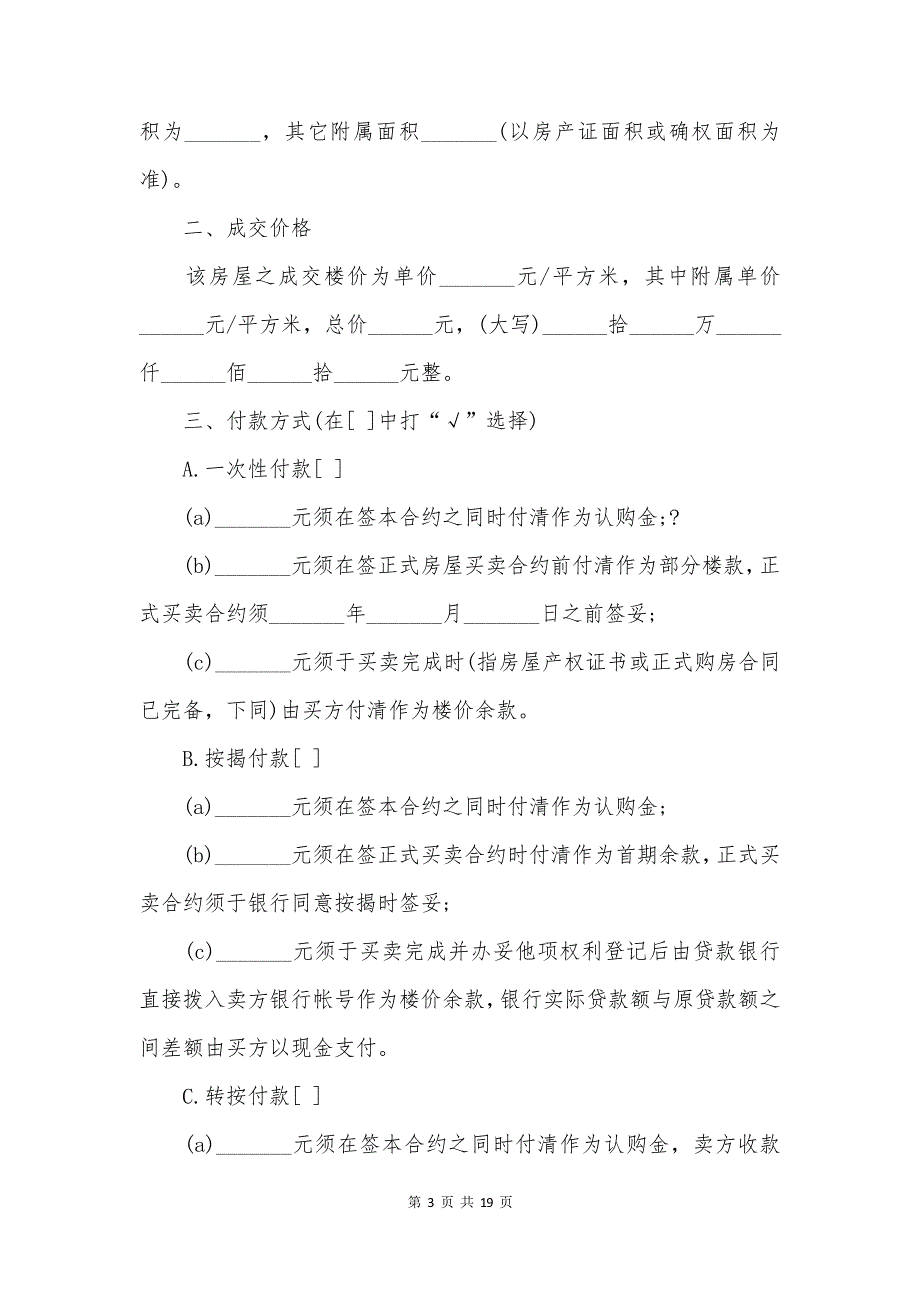 积为_______，其它附属面积_______(以房产证面积或确权面积为
准)。
二、成交价格
该房屋之成交楼价为单价_______元/平方米，其中附属单价
______元/平方米，总价______元，(大写)______拾______万______
仟______佰______拾______元整。
三、付款方式(在[ ]中打“√”选择)
A.一次性付款[ ]
(a)_______元须在签本合约之同时付清作为认购金;?
(b)_______元须在签正式房屋买卖合约前付清作为部分楼款，正
式买卖合约须_______年_______月_______日之前签妥;
(c)_______元须于买卖完成时(指房屋产权证书或正式购房合同
已完备，下同)由买方付清作为楼价余款。
B.按揭付款[ ]
(a)_______元须在签本合约之同时付清作为认购金;
(b)_______元须在签正式买卖合约时付清作为首期余款，正式买
卖合约须于银行同意按揭时签妥;
(c)_______元须于买卖完成并办妥他项权利登记后由贷款银行
直接拨入卖方银行帐号作为楼价余款，银行实际贷款额与原贷款额之
间差额由买方以现金支付。
C.转按付款[ ]
(a)_______元须在签本合约之同时付清作为认购金，卖方收款
第 3 页 共 19 页